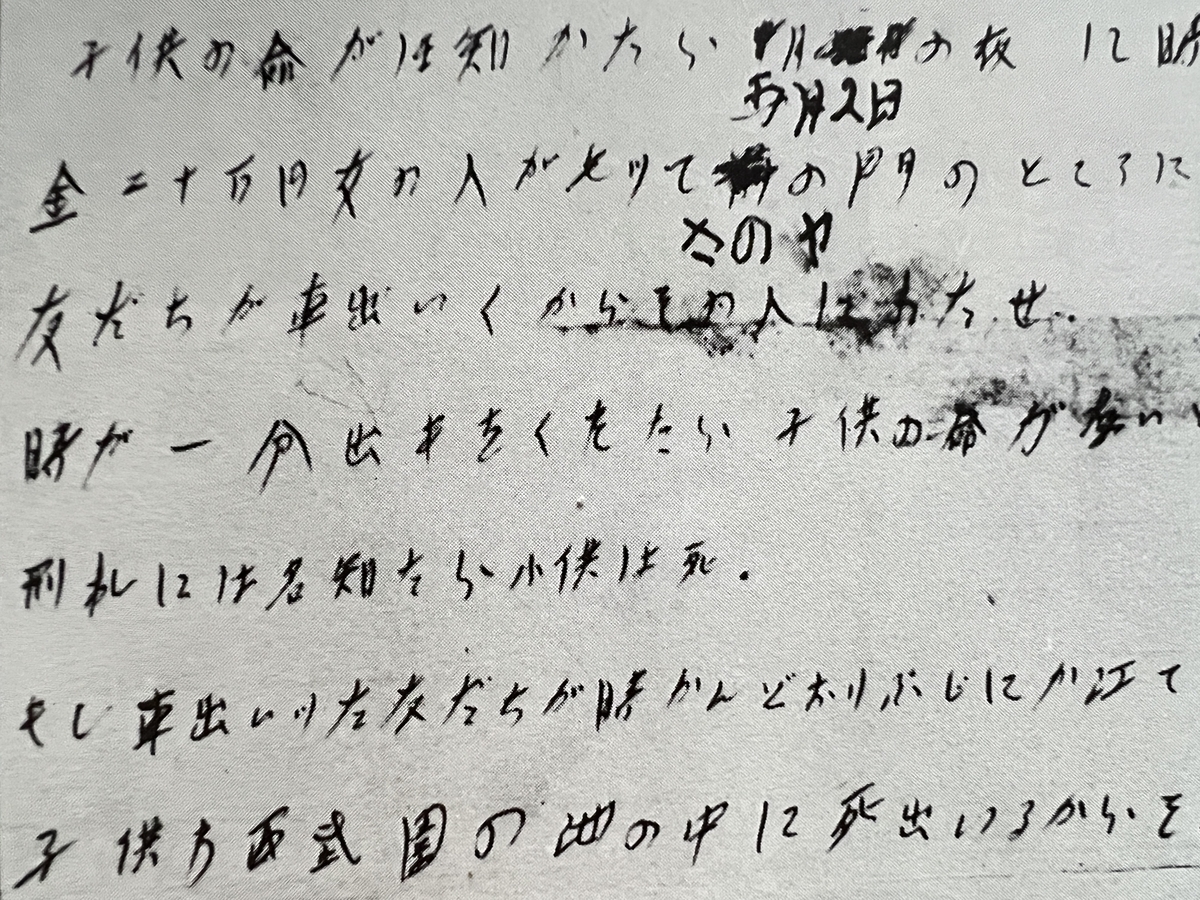 子供の命がほ知かたら の夜１２時
五月2日
金二十万円女の人がもツて の門のところに
さのヤ
友だちが車出いくからその人にわたせ.
時が一分出もをくをたら子供の命がないと
刑札には名知たら小供は死.
もし車出いツた友だちが時かんどおりぶじにか江て
子供か西武園の池の中に死出いるからそ